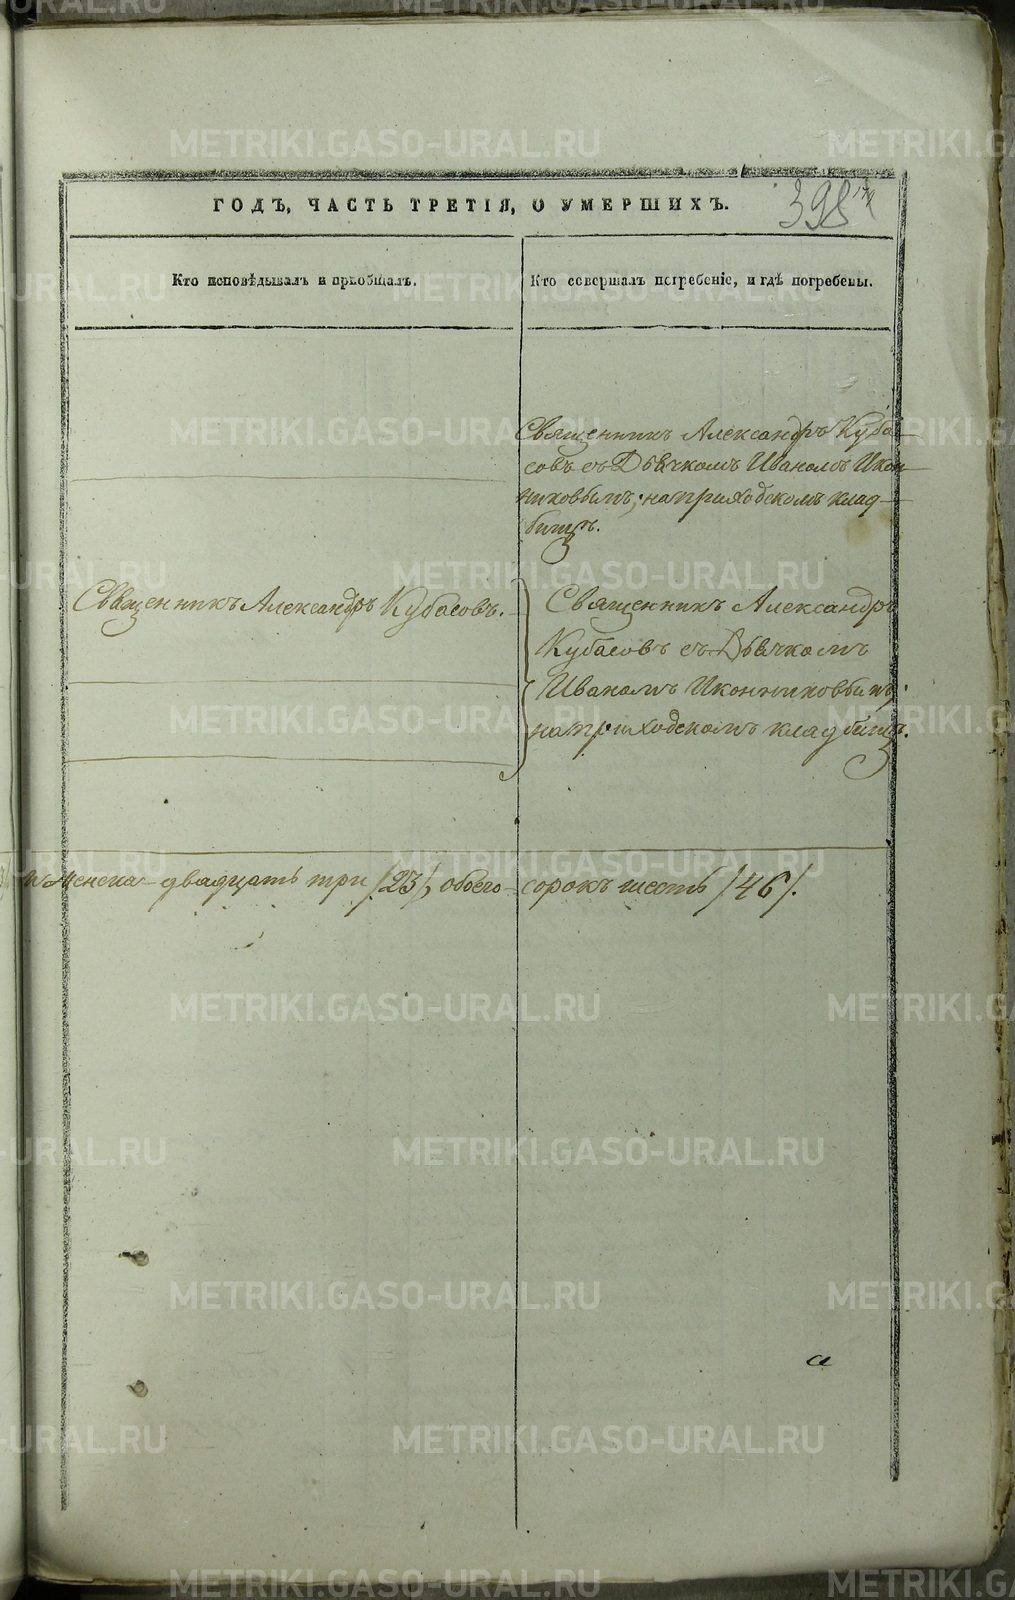 ГОДЪ, ЧАСТЬ ТРЕТІЯ, О УМЕРШИХЪ.
398
Кто исповѣдывалъ и пріобщалъ.
Кто совершалъ погребеніе, и гдѣ погребены.
Священникъ Александръ Куба-
совъ съ Дьячкомъ Иваномъ Икон-
никовымъ; на приходскомъ клад-
бищѣ.
Священникъ Александръ Кубасовъ.
Священникъ Александръ
Кубасовъ съ Дьячкомъ
Иваномъ Иконниковымъ;
на приходскомъ кладбищѣ.
и женска - двадцать три /23/, обоего - сорокъ шесть /46/.
METRIKI.GASO-URAL.RU